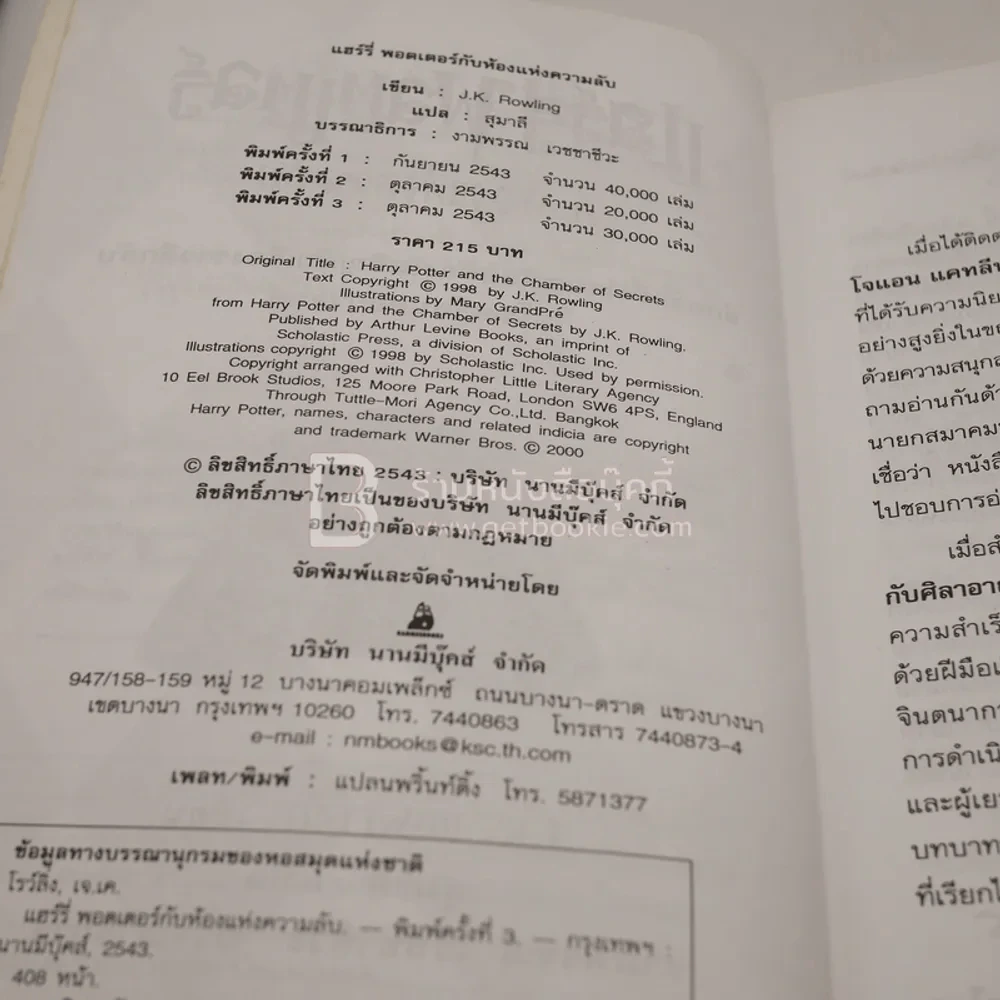 แฮร์รี่ พอตเตอร์กับห้องแห่งความลับ
เขียน : J.K. Rowling
แปล : สุมาลี
บรรณาธิการ : งามพรรณ เวชชาชีวะ
พิมพ์ครั้งที่ 1 : กันยายน 2543 จำนวน 40,000 เล่ม
พิมพ์ครั้งที่ 2 : ตุลาคม 2543 จำนวน 20,000 เล่ม
พิมพ์ครั้งที่ 3 : ตุลาคม 2543 จำนวน 30,000 เล่ม
ราคา 215 บาท
Original Title : Harry Potter and the Chamber of Secrets
Text Copyright © 1998 by J.K. Rowling
Illustrations by Mary GrandPré
from Harry Potter and the Chamber of Secrets by J.K. Rowling.
Published by Arthur Levine Books, an imprint of
Scholastic Press, a division of Scholastic Inc.
Illustrations copyright © 1998 by Scholastic Inc. Used by permission.
Copyright arranged with Christopher Little Literary Agency
10 Eel Brook Studios, 125 Moore Park Road, London SW6 4PS, England
Through Tuttle-Mori Agency Co.,Ltd. Bangkok
Harry Potter, names, characters and related indicia are copyright
and trademark Warner Bros. © 2000
© ลิขสิทธิ์ภาษาไทย 2543 : บริษัท นานมีบุ๊คส์ จำกัด
ลิขสิทธิ์ภาษาไทยเป็นของบริษัท นานมีบุ๊คส์ จำกัด
อย่างถูกต้องตามกฎหมาย
ร้านหนังสือบุ๊คกี้
www.getbookie.com
จัดพิมพ์และจัดจำหน่ายโดย
บริษัท นานมีบุ๊คส์ จำกัด
947/158-159 หมู่ 12 บางนาคอมเพล็กซ์ ถนนบางนา-ตราด แขวงบางนา
เขตบางนา กรุงเทพฯ 10260 โทร. 7440863 โทรสาร 7440873-4
e-mail : nmbooks@ksc.th.com
เพลท/พิมพ์ : แปลนพริ้นท์ติ้ง โทร. 5871377
ข้อมูลทางบรรณานุกรมของหอสมุดแห่งชาติ
โรว์ลิ่ง, เจ.เค.
แฮร์รี่ พอตเตอร์กับห้องแห่งความลับ. — พิมพ์ครั้งที่ 3. — กรุงเทพฯ :
นานมีบุ๊คส์, 2543.
408 หน้า.
เมื่อได้ติดต
โจแอน แคทลีน
ที่ได้รับความนิย
อย่างสูงยิ่งในขณ
ด้วยความสนุกส
ถามอ่านกันด้ว
นายกสมาคมห
เชื่อว่า หนังสื
ไปชอบการอ่
เมื่อสำ
กับศิลาอา
ความสำเร็
ด้วยฝีมือเ
จินตนากา
การดำเนิ
และผู้เย
บทบาท
ที่เรียกไ